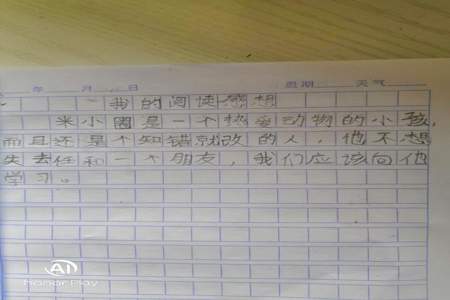 年 月 日 星期 天气
我的阅读感想
米小圈是一个热爱动物的小孩,
而且还是个知错就改的人,他不想
失去任和一个朋友,我们应该向他
学习。
AI
Honor Play